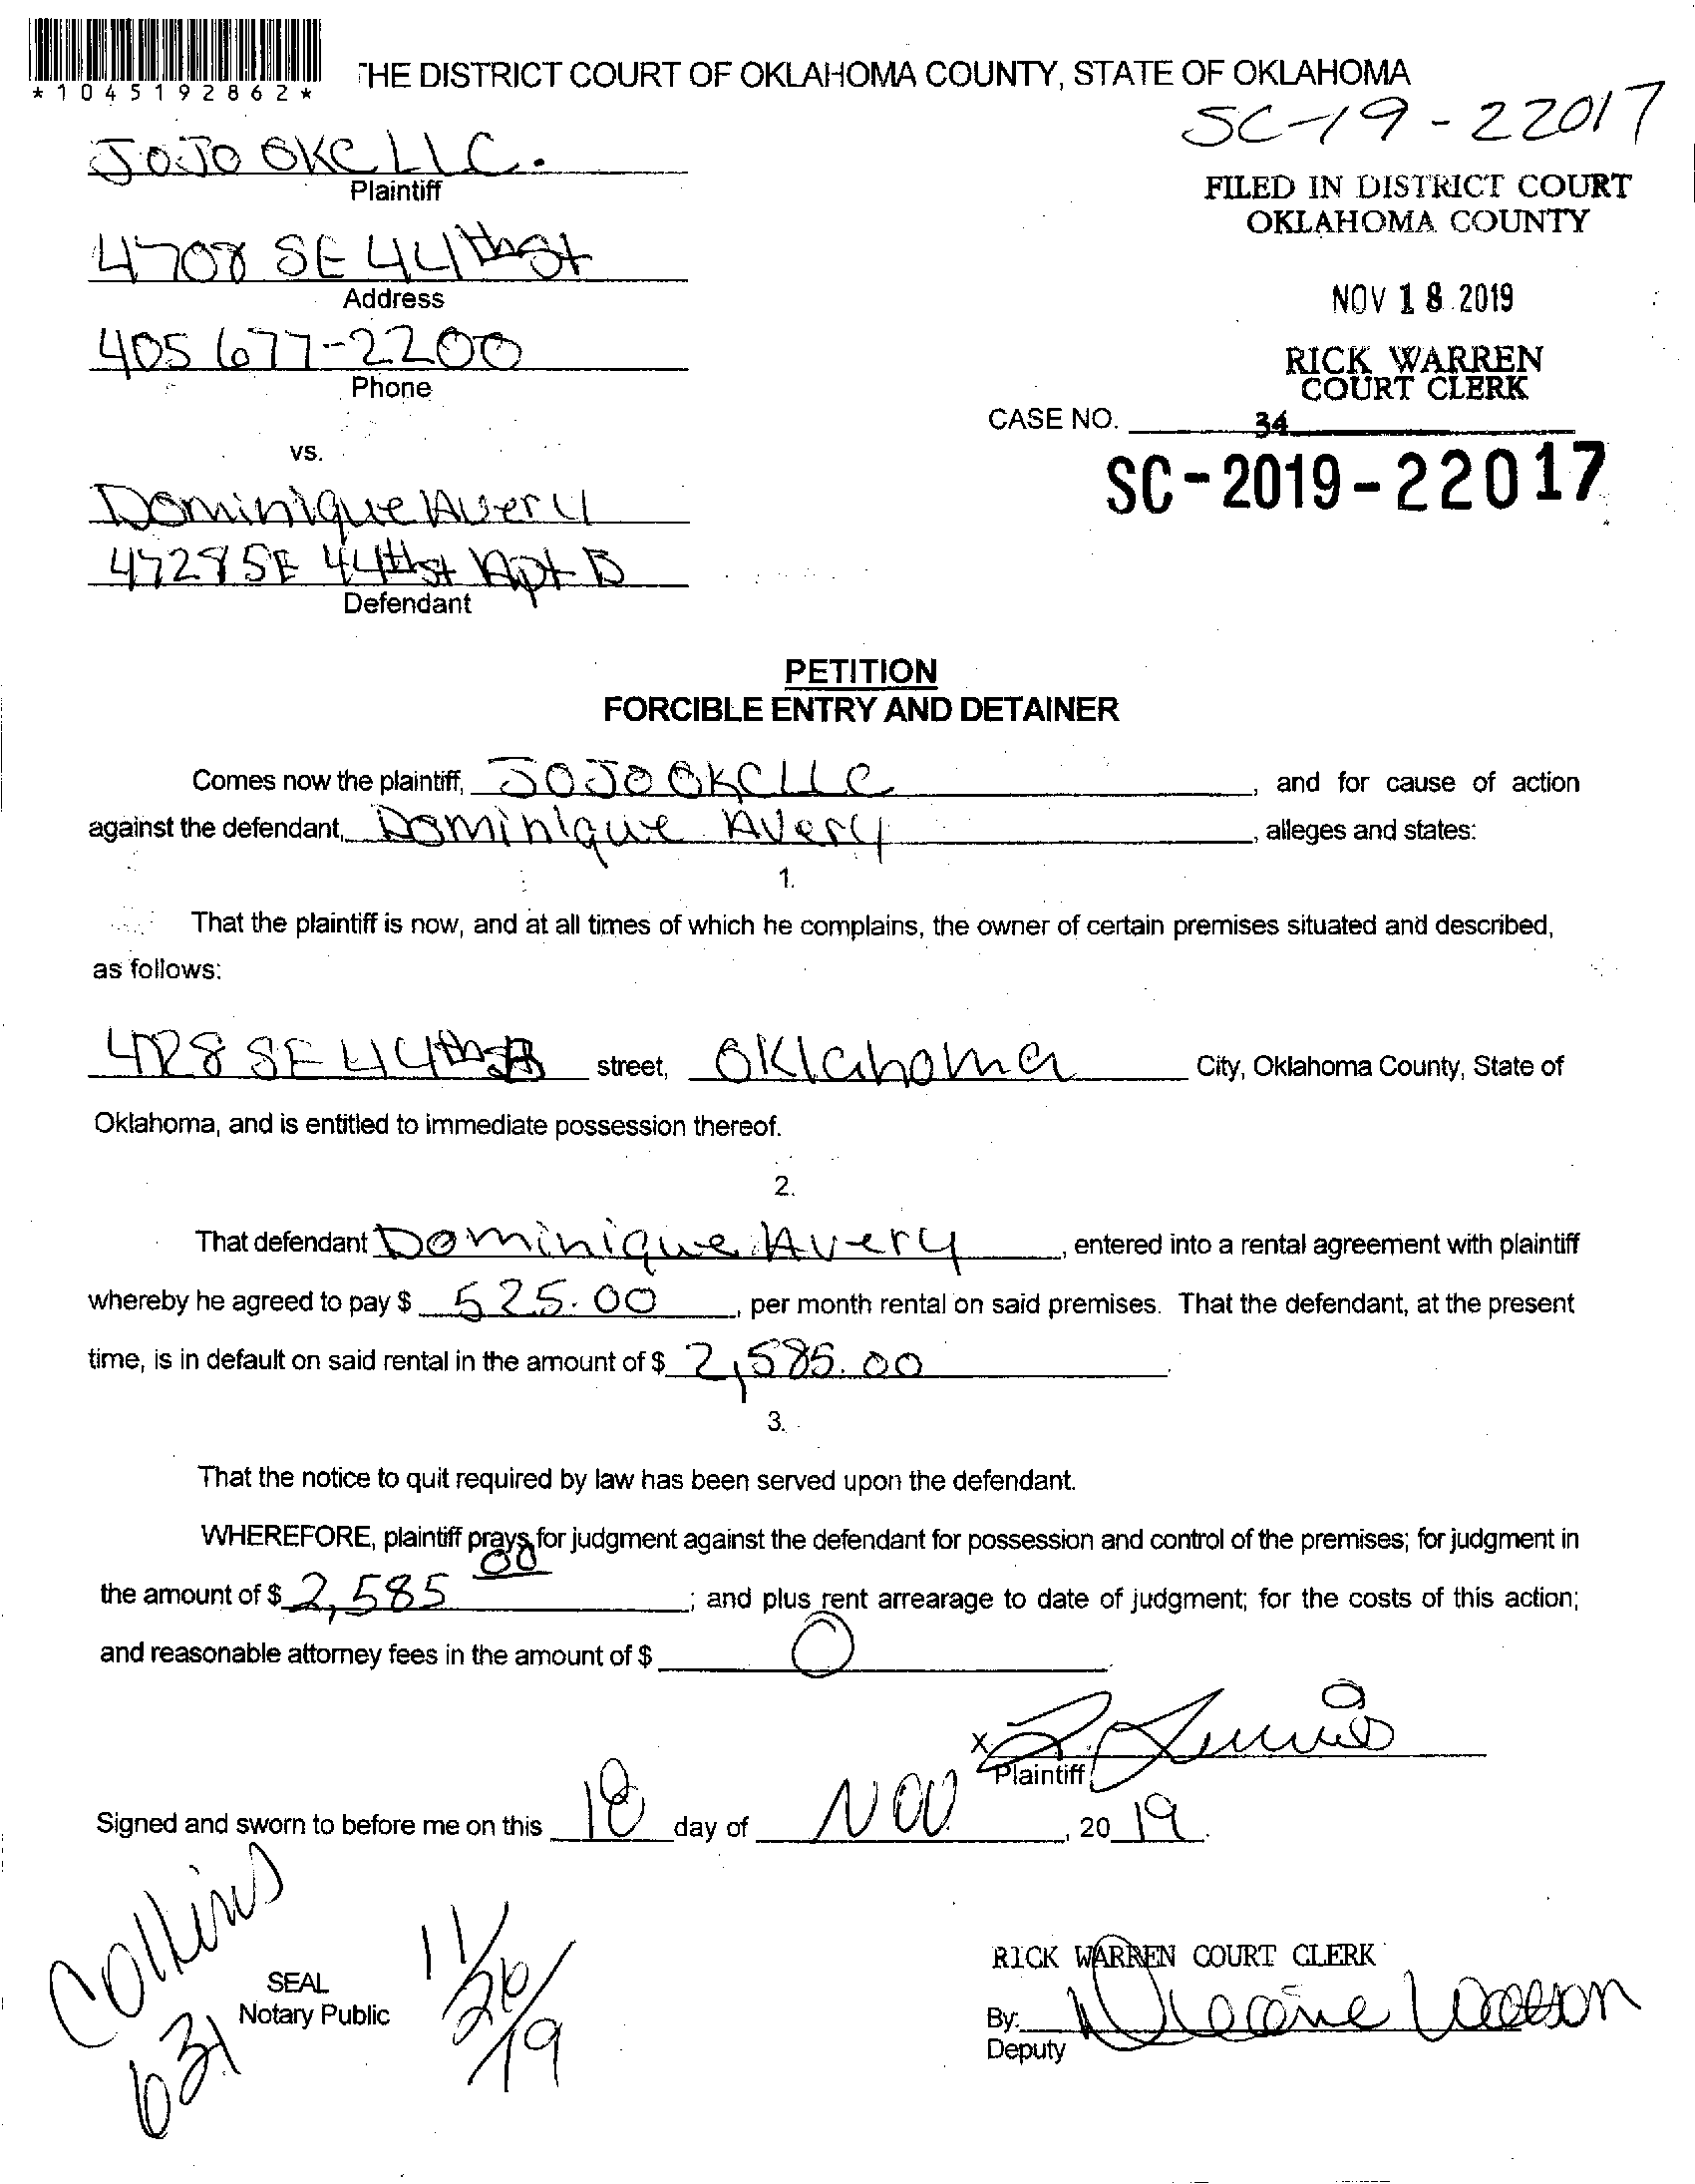 *1045192862*
THE DISTRICT COURT OF OKLAHOMA COUNTY, STATE OF OKLAHOMA
SC-19-22017
JOJO OKC LLC.
Plaintiff
FILED IN DISTRICT COURT
OKLAHOMA COUNTY
4708 SE 44th St
Address
NOV 18 2019
405 677-2200
Phone
RICK WARREN
COURT CLERK
CASE NO.
34
vs.
SC-2019-22017
Dominique Avery
4728 SE 44th st Apt B
Defendant
PETITION
FORCIBLE ENTRY AND DETAINER
Comes now the plaintiff, JOJO OKC LLC, and for cause of action
against the defendant, Dominique Avery, alleges and states:
1.
That the plaintiff is now, and at all times of which he complains, the owner of certain premises situated and described,
as follows:
4728 SE 44th B street, Oklahoma City, Oklahoma County, State of
Oklahoma, and is entitled to immediate possession thereof.
2.
That defendant Dominique Avery, entered into a rental agreement with plaintiff
whereby he agreed to pay $ 525.00, per month rental on said premises. That the defendant, at the present
time, is in default on said rental in the amount of $ 2,585.00.
3.
That the notice to quit required by law has been served upon the defendant.
WHEREFORE, plaintiff prays for judgment against the defendant for possession and control of the premises; for judgment in
the amount of $ 2,585 00; and plus rent arrearage to date of judgment; for the costs of this action;
and reasonable attorney fees in the amount of $ 0.
X
Plaintiff
Signed and sworn to before me on this 18 day of NOV, 20 19.
Collins
631
11/26/19
SEAL
Notary Public
RICK WARREN COURT CLERK
By:
Deputy